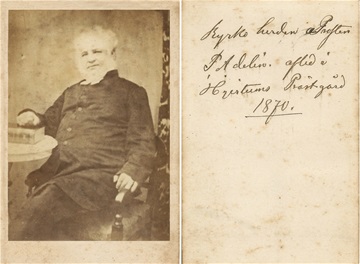 Kyrko herden o Prosten
P Adelén. afled i
Hjertums Prästgård
1870.